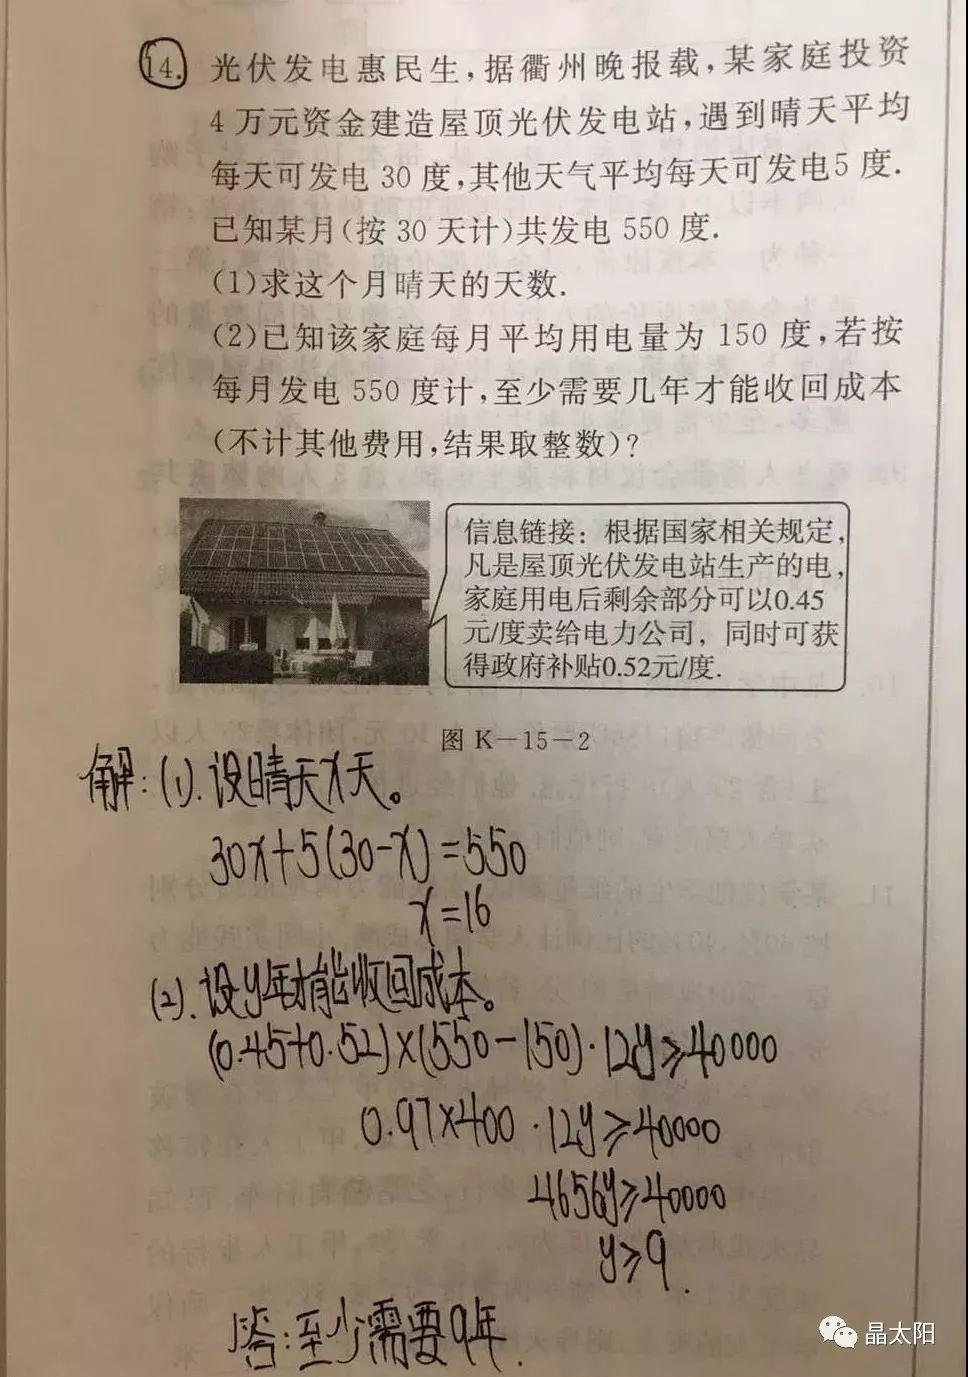 14. 光伏发电惠民生,据衢州晚报载,某家庭投资
4万元资金建造屋顶光伏发电站,遇到晴天平均
每天可发电30度,其他天气平均每天可发电5度.
已知某月(按30天计)共发电550度.
(1)求这个月晴天的天数.
(2)已知该家庭每月平均用电量为150度,若按
每月发电550度计,至少需要几年才能收回成本
(不计其他费用,结果取整数)?
信息链接:根据国家相关规定,
凡是屋顶光伏发电站生产的电,
家庭用电后剩余部分可以0.45
元/度卖给电力公司,同时可获
得政府补贴0.52元/度.
图 K-15-2
解:(1).设晴天x天。
30x+5(30-x)=550
x=16
(2).设y年才能收回成本。
(0.45+0.52)×(550-150)·12y≥40000
0.97×400·12y≥40000
4656y≥40000
y≥9.
答:至少需要9年.
晶太阳